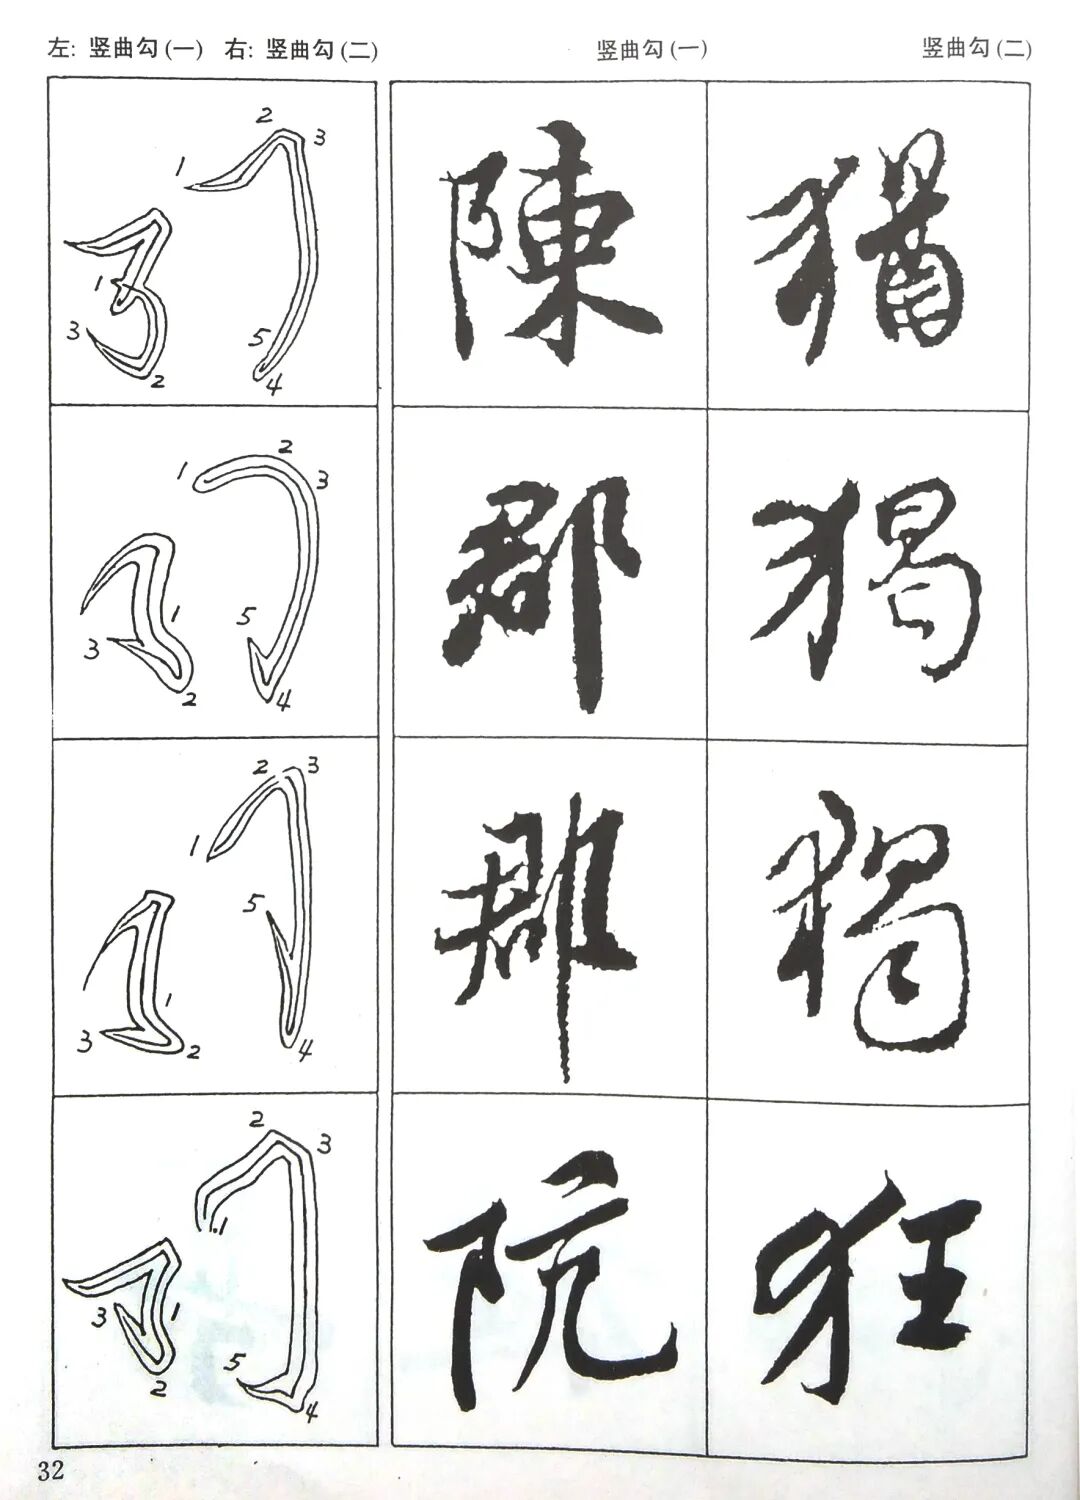 左: 竖曲勾(一) 右: 竖曲勾(二) 竖曲勾(一) 竖曲勾(二)
1 2 3 4 5
1 2 3
陳 猶
1 2 3 4 5
1 2 3
郡 猲
1 2 3 4 5
1 2 3
郡 獨
1 2 3 4 5
1 2 3
阮 狂
32